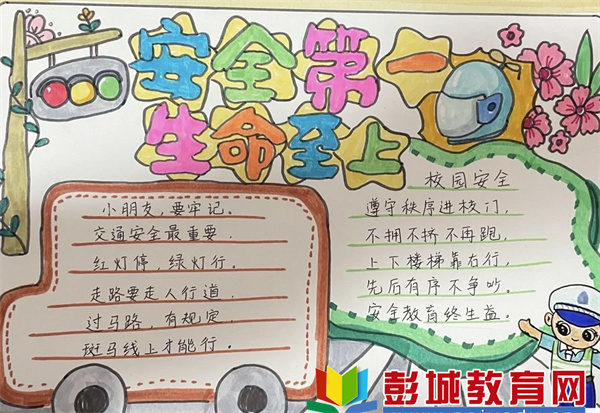 安全第一
生命至上
小朋友,要牢记。
交通安全最重要.
红灯停,绿灯行。
走路要走人行道.
过马路,有规定
斑马线上才能行。
校园安全
遵守秩序进校门,
不拥不挤不再跑,
上下楼梯靠右行,
先后有序不争吵。
安全教育终生益。
彭城教育网